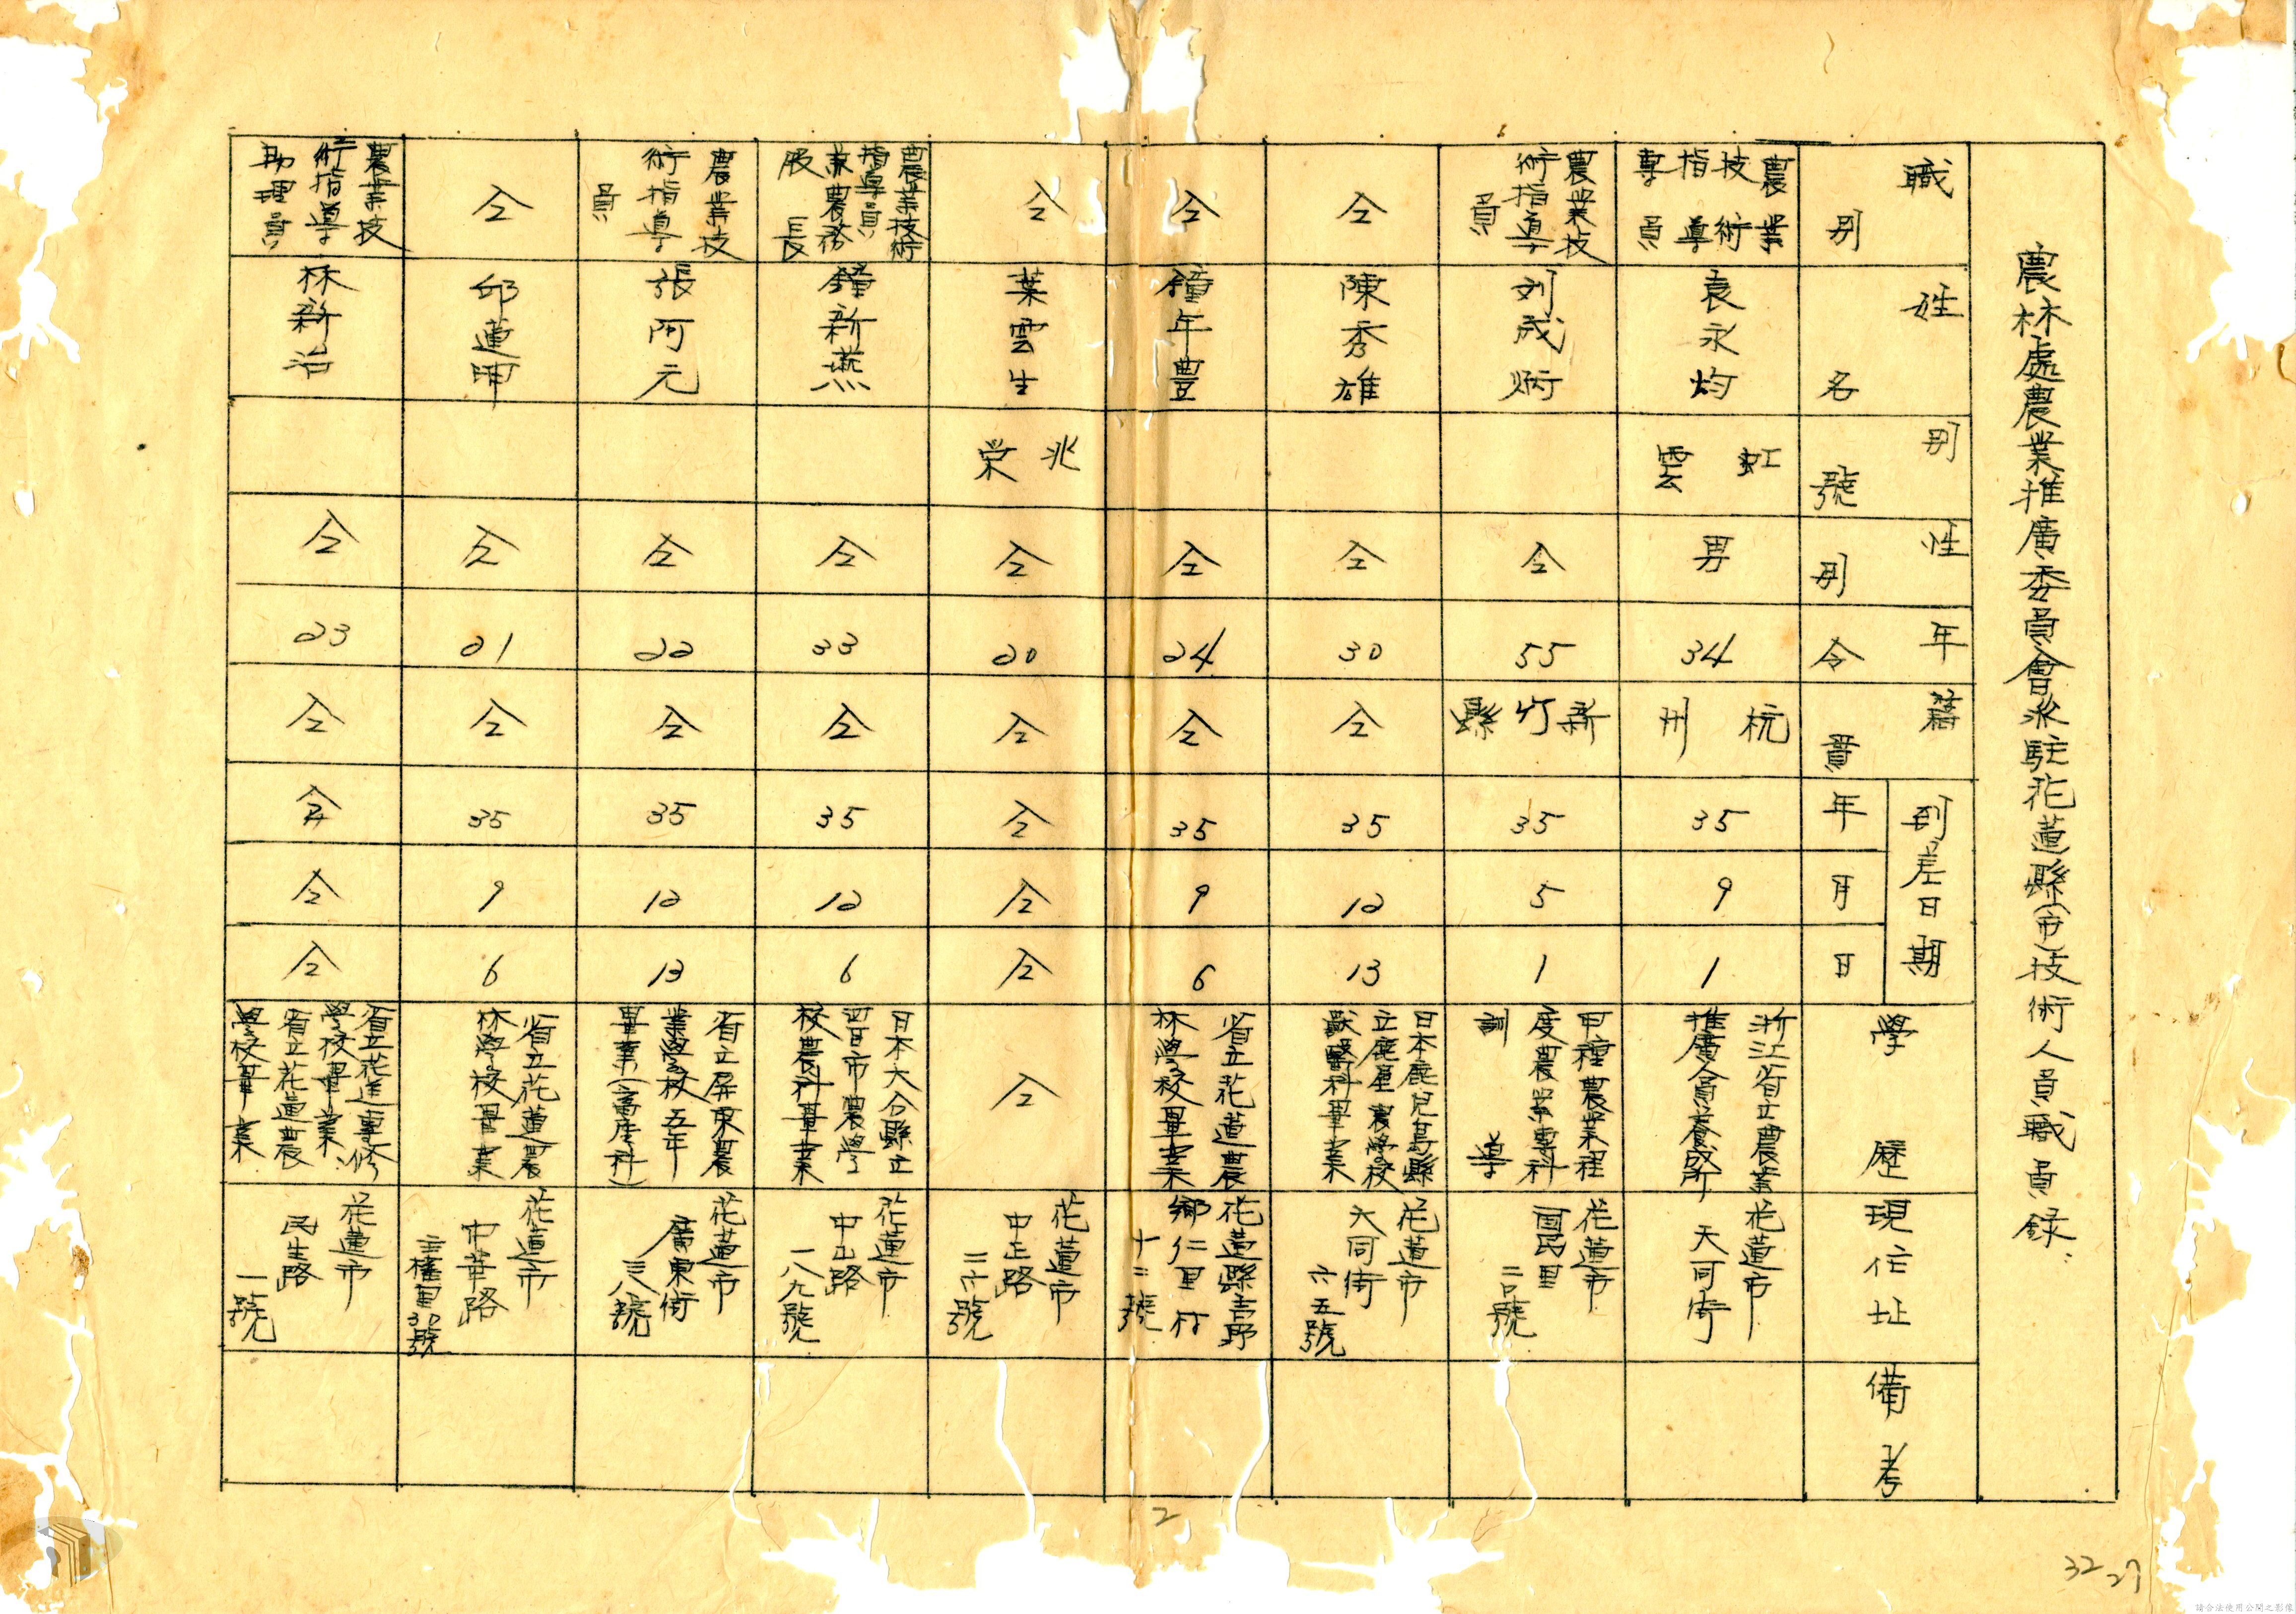 農林處農業推廣委員會派駐花蓮縣(市)技術人員職員録：
職別
姓名
別號
性別
年令
籍貫
到差日期
年
月
日
學歷
現住址
備考
農業技術指導專員
袁永灼
虹雲
男
34
杭州
35
9
1
浙江省立農業推廣人員養成所
花蓮市大同街
農業技術指導員
刘成炳
仝
55
新竹縣
35
5
1
甲種農學業程度農業專科訓導
花蓮市國民里二〇號
仝
陳秀雄
仝
30
仝
35
12
13
日本鹿児島縣立鹿屋農學校獸醫科畢業
花蓮市大同街六五號
仝
鐘年豊
仝
24
仝
35
9
6
省立花蓮農林學校畢業
花蓮縣吉野鄉仁里村十二號
仝
葉雲生
兆荣
仝
20
仝
仝
仝
仝
仝
花蓮市中正路二六號
農業技術指導員兼農務股長
鐘新燕
仝
33
仝
35
12
6
日本大分縣立四日市農學校農科畢業
花蓮市中山路一八九號
農業技術指導員
張阿元
仝
22
仝
35
12
13
省立屏東農業學校五年畢業(畜産科)
花蓮市廣東街三八號
仝
邱蓮
仝
21
仝
35
9
6
省立花蓮農林學校畢業
花蓮市中華路主權里30號
農業技術指導助理員
林新治
仝
23
仝
仝
仝
仝
省立花蓮專修學校畢業、省立花蓮農學校畢業
花蓮市民生路一號
2
32
27
請合法使用公開之影像